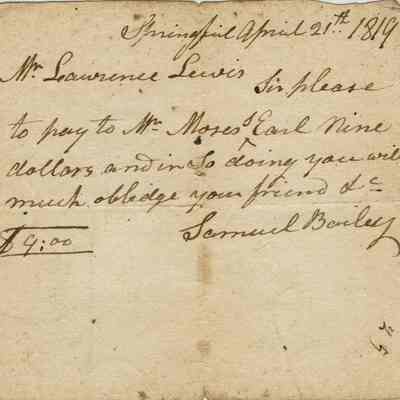 Springfiel April 21th 1819
Mr Lawrence Lewis
Sir please
to pay to Mr Moses Earl Nine
dollars and in So doing you will
much obledge your friend &c
$9:00
Samuel Bailey